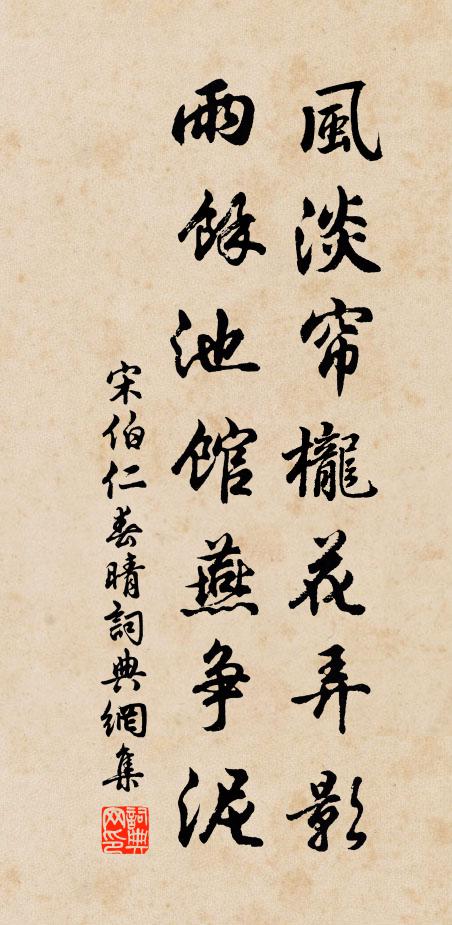 風淡帘櫳花弄影
雨餘池館燕争泥
宋伯仁春晴詞典網集
詞典网印